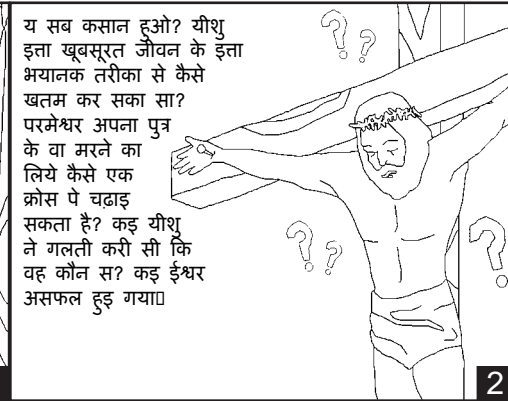 य सब कसान हुओ? यीशु
इत्ता खूबसूरत जीवन के इत्ता
भयानक तरीका से कैसे
खतम कर सका सा?
परमेश्वर अपना पुत्र
के वा मरने का
लिये कैसे एक
क्रोस पे चढ़ाइ
सकता है? कइ यीशु
ने गलती करी सी कि
वह कौन स? कइ ईश्वर
असफल हुइ गया▯
2